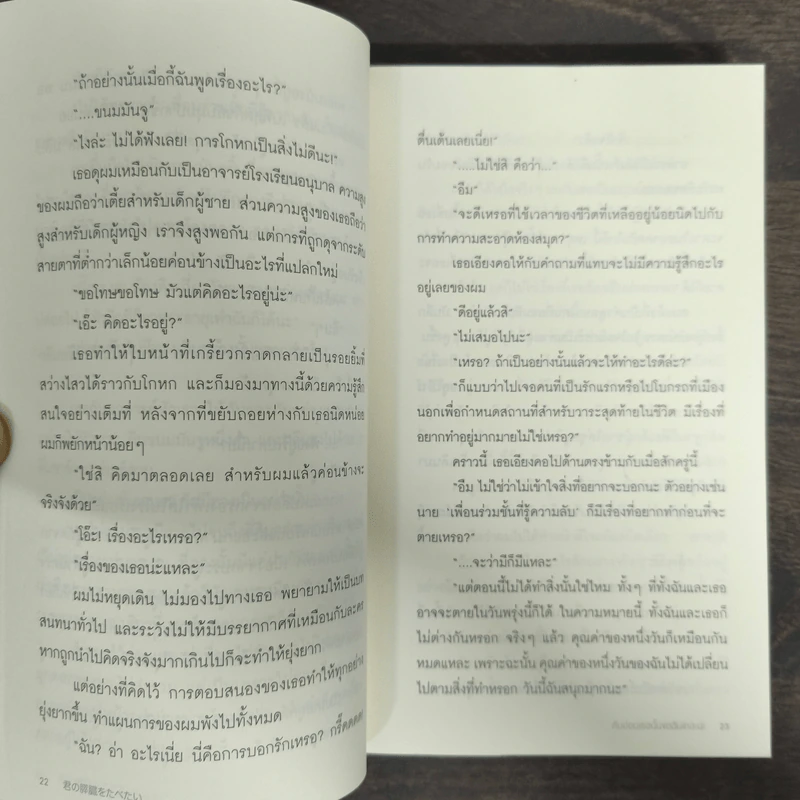 “ถ้าอย่างนั้นเมื่อกี้ฉันพูดเรื่องอะไร?”
“....ขนมมันจู”
“ไงล่ะ ไม่ได้ฟังเลย! การโกหกเป็นสิ่งไม่ดีนะ!”
เธอดุผมเหมือนกับเป็นอาจารย์โรงเรียนอนุบาล ความสูง
ของผมถือว่าเตี้ยสำหรับเด็กผู้ชาย ส่วนความสูงของเธอถือว่า
สูงสำหรับเด็กผู้หญิง เราจึงสูงพอกัน แต่การที่ถูกดุจากระดับ
สายตาที่ต่ำกว่าเล็กน้อยค่อนข้างเป็นอะไรที่แปลกใหม่
“ขอโทษขอโทษ มัวแต่คิดอะไรอยู่น่ะ”
“เอ๊ะ คิดอะไรอยู่?”
เธอทำให้ใบหน้าที่เกรี้ยวกราดกลายเป็นรอยยิ้มที่
สว่างไสวได้ราวกับโกหก และก็มองมาทางนี้ด้วยความรู้สึก
สนใจอย่างเต็มที่ หลังจากที่ขยับถอยห่างกับเธอนิดหน่อย
ผมก็พยักหน้าน้อยๆ
“ใช่สิ คิดมาตลอดเลย สำหรับผมแล้วค่อนข้างจะ
จริงจังด้วย”
“โอ๊ะ! เรื่องอะไรเหรอ?”
“เรื่องของเธอน่ะแหละ”
ผมไม่หยุดเดิน ไม่มองไปทางเธอ พยายามให้เป็นบท
สนทนาทั่วไป และระวังไม่ให้มีบรรยากาศที่เหมือนกับละคร
หากถูกนำไปคิดจริงจังมากเกินไปก็จะทำให้ยุ่งยาก
แต่อย่างที่คิดไว้ การตอบสนองของเธอทำให้ทุกอย่าง
ยุ่งยากขึ้น ทำแผนการของผมพังไปทั้งหมด
“ฉัน? อ่า อะไรเนี่ย นี่คือการบอกรักเหรอ? กรี๊ดดดด!
22 君の膵臓をたべたい
ตื่นเต้นเลยเนี่ย!”
“.....ไม่ใช่สิ คือว่า...”
“อืม”
“จะดีเหรอที่ใช้เวลาของชีวิตที่เหลืออยู่น้อยนิดไปกับ
การทำความสะอาดห้องสมุด?”
เธอเอียงคอให้กับคำถามที่แทบจะไม่มีความรู้สึกอะไร
อยู่เลยของผม
“ดีอยู่แล้วสิ”
“ไม่เสมอไปนะ”
“เหรอ? ถ้าเป็นอย่างนั้นแล้วจะให้ทำอะไรดีล่ะ?”
“ก็แบบว่าไปเจอคนที่เป็นรักแรกหรือไปโบกรถที่เมือง
นอกเพื่อกำหนดสถานที่สำหรับวาระสุดท้ายในชีวิต มีเรื่องที่
อยากทำอยู่มากมายไม่ใช่เหรอ?”
คราวนี้ เธอเอียงคอไปด้านตรงข้ามกับเมื่อสักครู่นี้
“อืม ไม่ใช่ว่าไม่เข้าใจสิ่งที่อยากจะบอกนะ ตัวอย่างเช่น
นาย ‘เพื่อนร่วมชั้นที่รู้ความลับ’ ก็มีเรื่องที่อยากทำก่อนที่จะ
ตายเหรอ?”
“....จะว่ามีก็มีแหละ”
“แต่ตอนนี้ไม่ได้ทำสิ่งนั้นใช่ไหม ทั้งๆ ที่ทั้งฉันและเธอ
อาจจะตายในวันพรุ่งนี้ก็ได้ ในความหมายนี้ ทั้งฉันและเธอก็
ไม่ต่างกันหรอก จริงๆ แล้ว คุณค่าของหนึ่งวันก็เหมือนกัน
หมดแหละ เพราะฉะนั้น คุณค่าของหนึ่งวันของฉันไม่ได้เปลี่ยน
ไปตามสิ่งที่ทำหรอก วันนี้ฉันสนุกมากนะ”
23